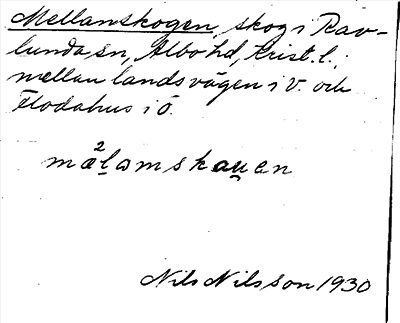 Mellanskogen, skog i Rav-
lunda sn, Albo hd, Krist. l.;
mellan landsvägen i V. och
Flodahus i Ö.
2
mæl̲amskau̲en
Nils Nilsson 1930